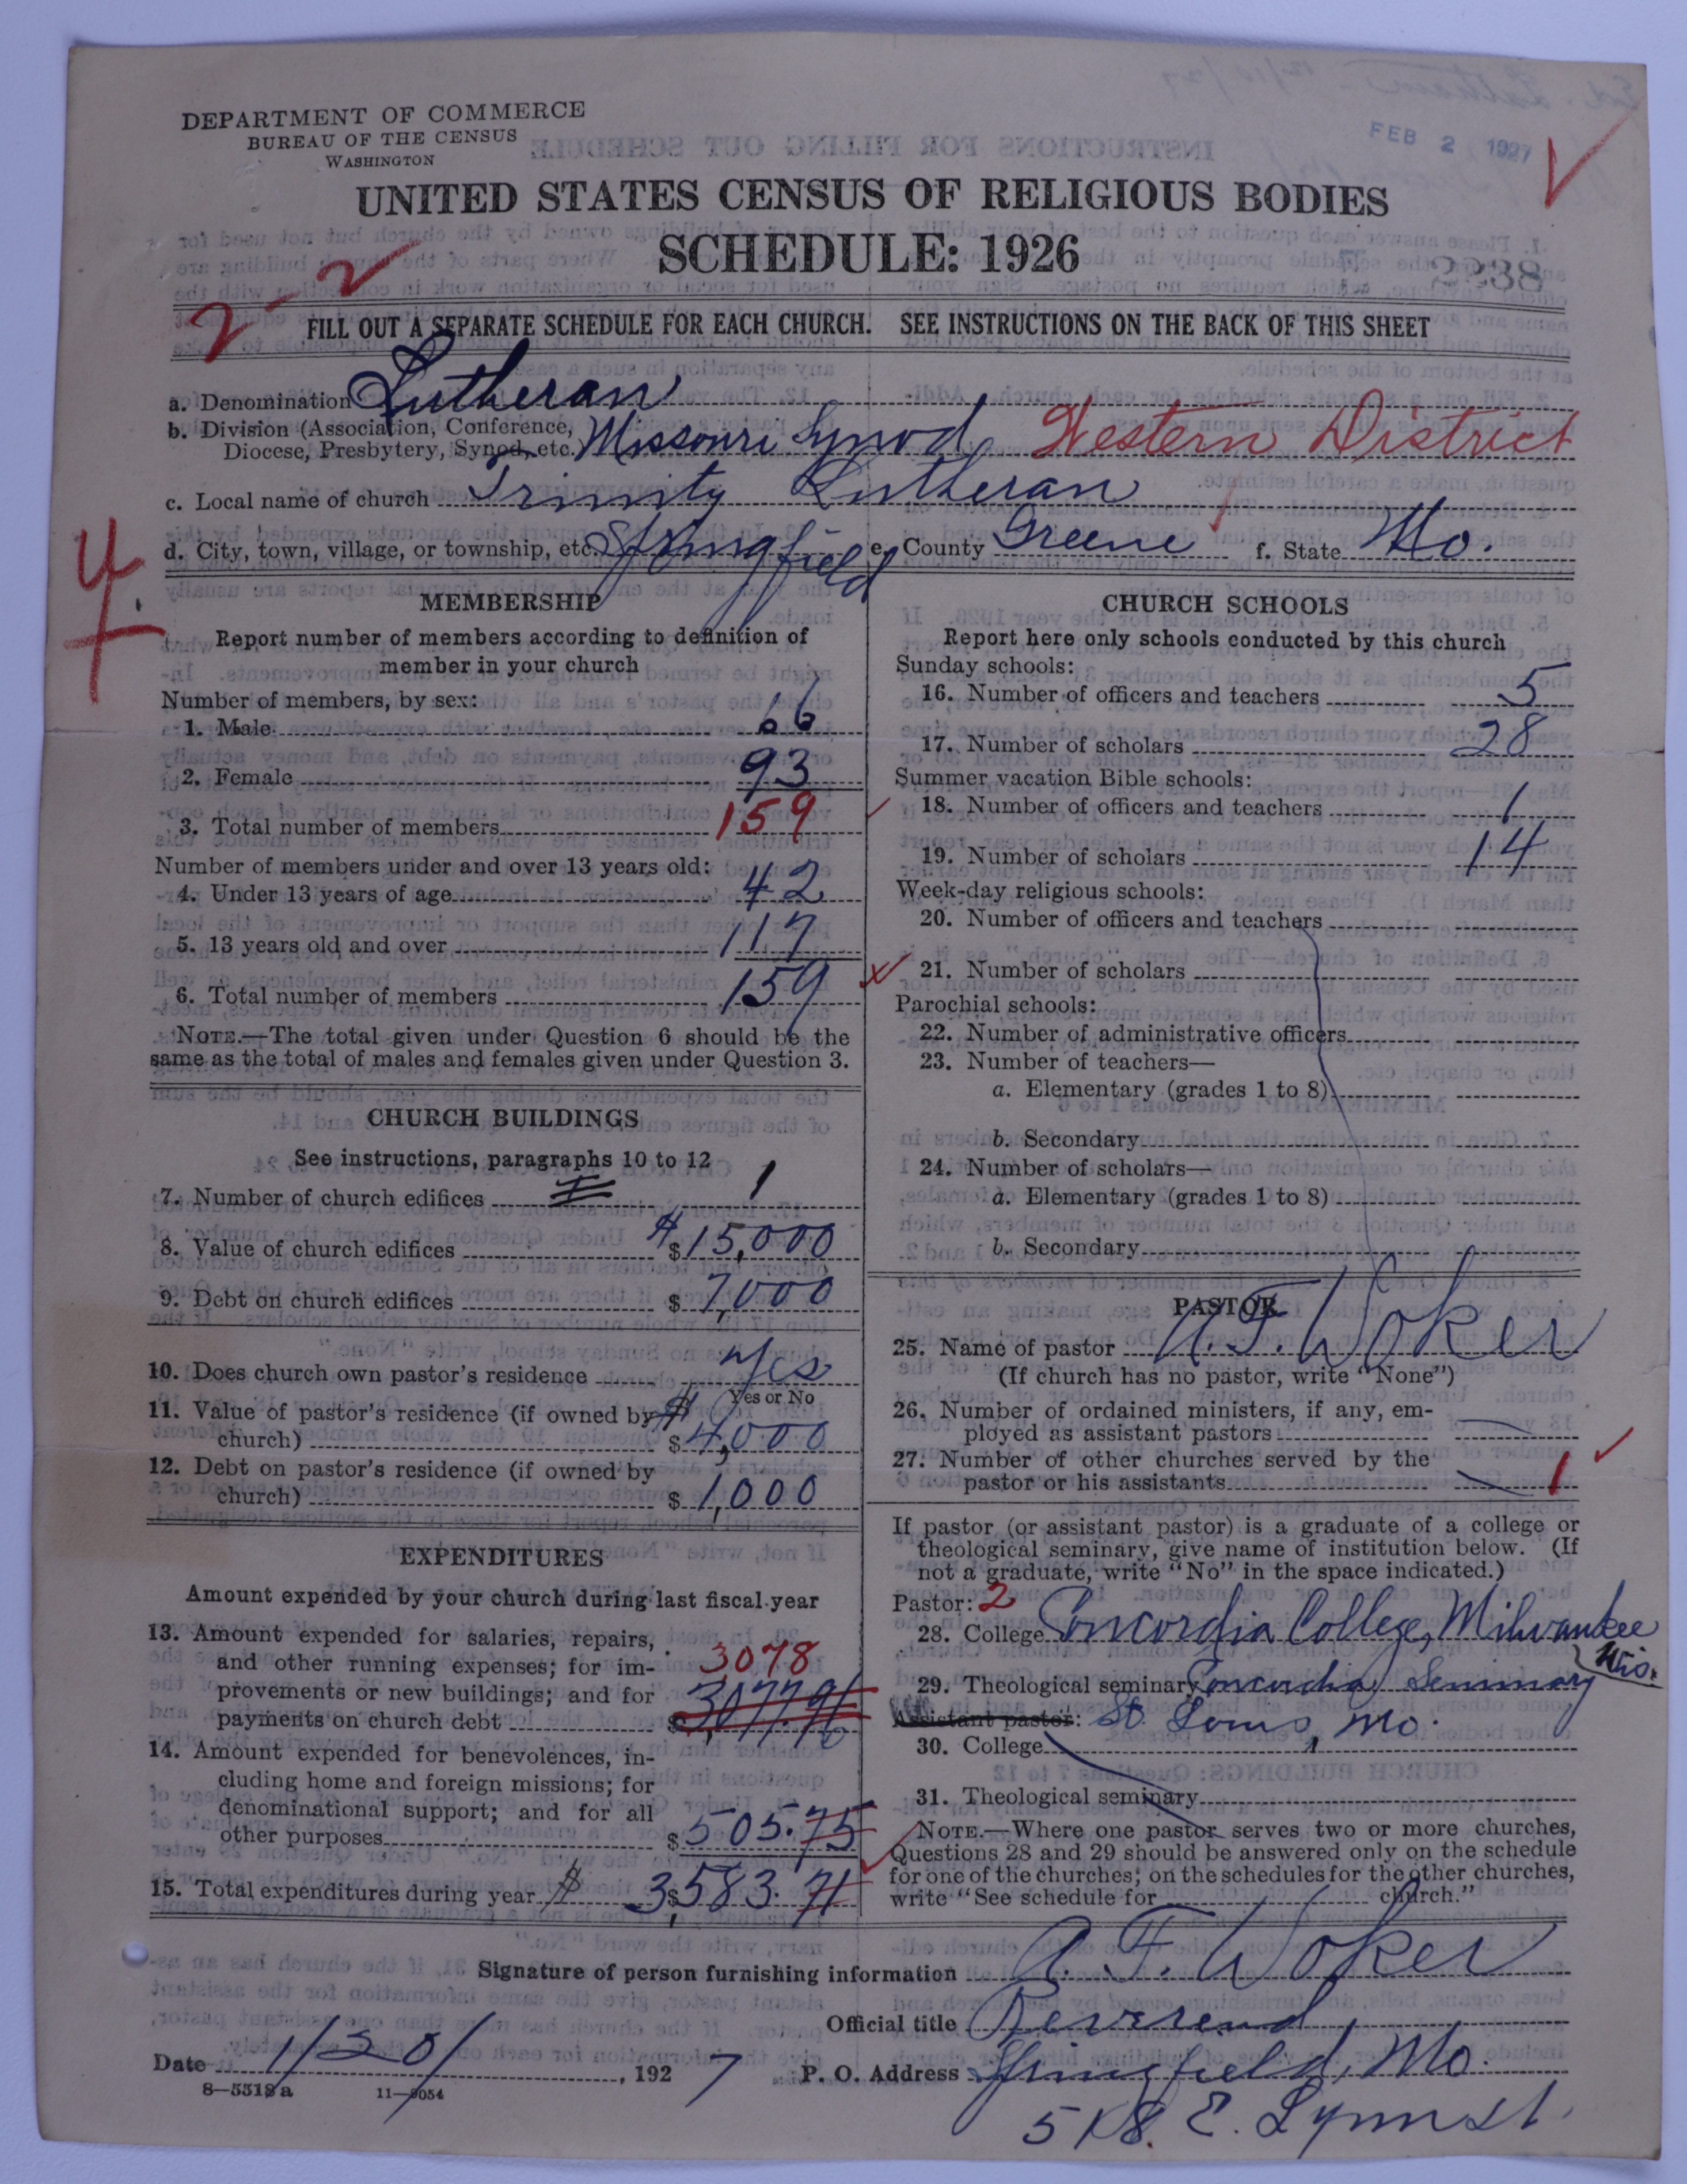 DEPARTMENT OF COMMERCE
BUREAU OF THE CENSUS
WASHINGTON
FEB 2 1927
UNITED STATES CENSUS OF RELIGIOUS BODIES
SCHEDULE: 1926
2-2
FILL OUT A SEPARATE SCHEDULE FOR EACH CHURCH. SEE INSTRUCTIONS ON THE BACK OF THIS SHEET
a. Denomination Lutheran
b. Division (Association, Conference, Diocese, Presbytery, Synod, etc.) Missouri Synod Western District
c. Local name of church Trinity Lutheran
d. City, town, village, or township, etc. Springfield e. County Greene f. State Mo.
4
MEMBERSHIP
Report number of members according to definition of
member in your church
Number of members, by sex:
1. Male 66
2. Female 93
3. Total number of members 159
Number of members under and over 13 years old:
4. Under 13 years of age 42
5. 13 years old and over 117
6. Total number of members 159
NOTE.—The total given under Question 6 should be the
same as the total of males and females given under Question 3.
CHURCH BUILDINGS
See instructions, paragraphs 10 to 12
7. Number of church edifices 1
8. Value of church edifices $ $15,000
9. Debt on church edifices $ 7,000
10. Does church own pastor's residence Yes
Yes or No
11. Value of pastor's residence (if owned by
church) $ $4,000
12. Debt on pastor's residence (if owned by
church) $ 1,000
EXPENDITURES
Amount expended by your church during last fiscal year
13. Amount expended for salaries, repairs,
and other running expenses; for im- 3078
provements or new buildings; and for
payments on church debt $ 3,077.96
14. Amount expended for benevolences, in-
cluding home and foreign missions; for
denominational support; and for all
other purposes $ 505.75
15. Total expenditures during year $ $ 3,583.71
CHURCH SCHOOLS
Report here only schools conducted by this church
Sunday schools:
16. Number of officers and teachers 5
17. Number of scholars 28
Summer vacation Bible schools:
18. Number of officers and teachers 1
19. Number of scholars 14
Week-day religious schools:
20. Number of officers and teachers
21. Number of scholars
Parochial schools:
22. Number of administrative officers
23. Number of teachers—
a. Elementary (grades 1 to 8)
b. Secondary
24. Number of scholars—
a. Elementary (grades 1 to 8)
b. Secondary
PASTOR
25. Name of pastor A. F. Woker
(If church has no pastor, write "None")
26. Number of ordained ministers, if any, em-
ployed as assistant pastors
27. Number of other churches served by the
pastor or his assistants 1
If pastor (or assistant pastor) is a graduate of a college or
theological seminary, give name of institution below. (If
not a graduate, write "No" in the space indicated.)
Pastor: 2
28. College Concordia College, Milwaukee
Wis.
29. Theological seminary Concordia Seminary
Assistant pastor: St. Louis, Mo.
30. College
31. Theological seminary
NOTE.—Where one pastor serves two or more churches,
Questions 28 and 29 should be answered only on the schedule
for one of the churches; on the schedules for the other churches,
write "See schedule for church."
Signature of person furnishing information A. F. Woker
Official title Reverend
Date 1/30/, 1927 P. O. Address Springfield, Mo.
8—5518a 11—9054
518 E. Lynn St.